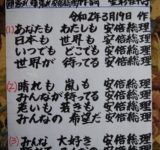 令和2年3月19日 作
(1)
あなたも わたしも 安倍総理
日本も 世界も 安倍総理
いつでも どこでも 安倍総理
世界が 待ってる 安倍総理
(2)
晴れも 嵐も 安倍総理
みんなが 待ってる 安倍総理
老いも 若きも 安倍総理
みんなの 希望だ 安倍総理
(3)
みんな 大好き 安倍総理